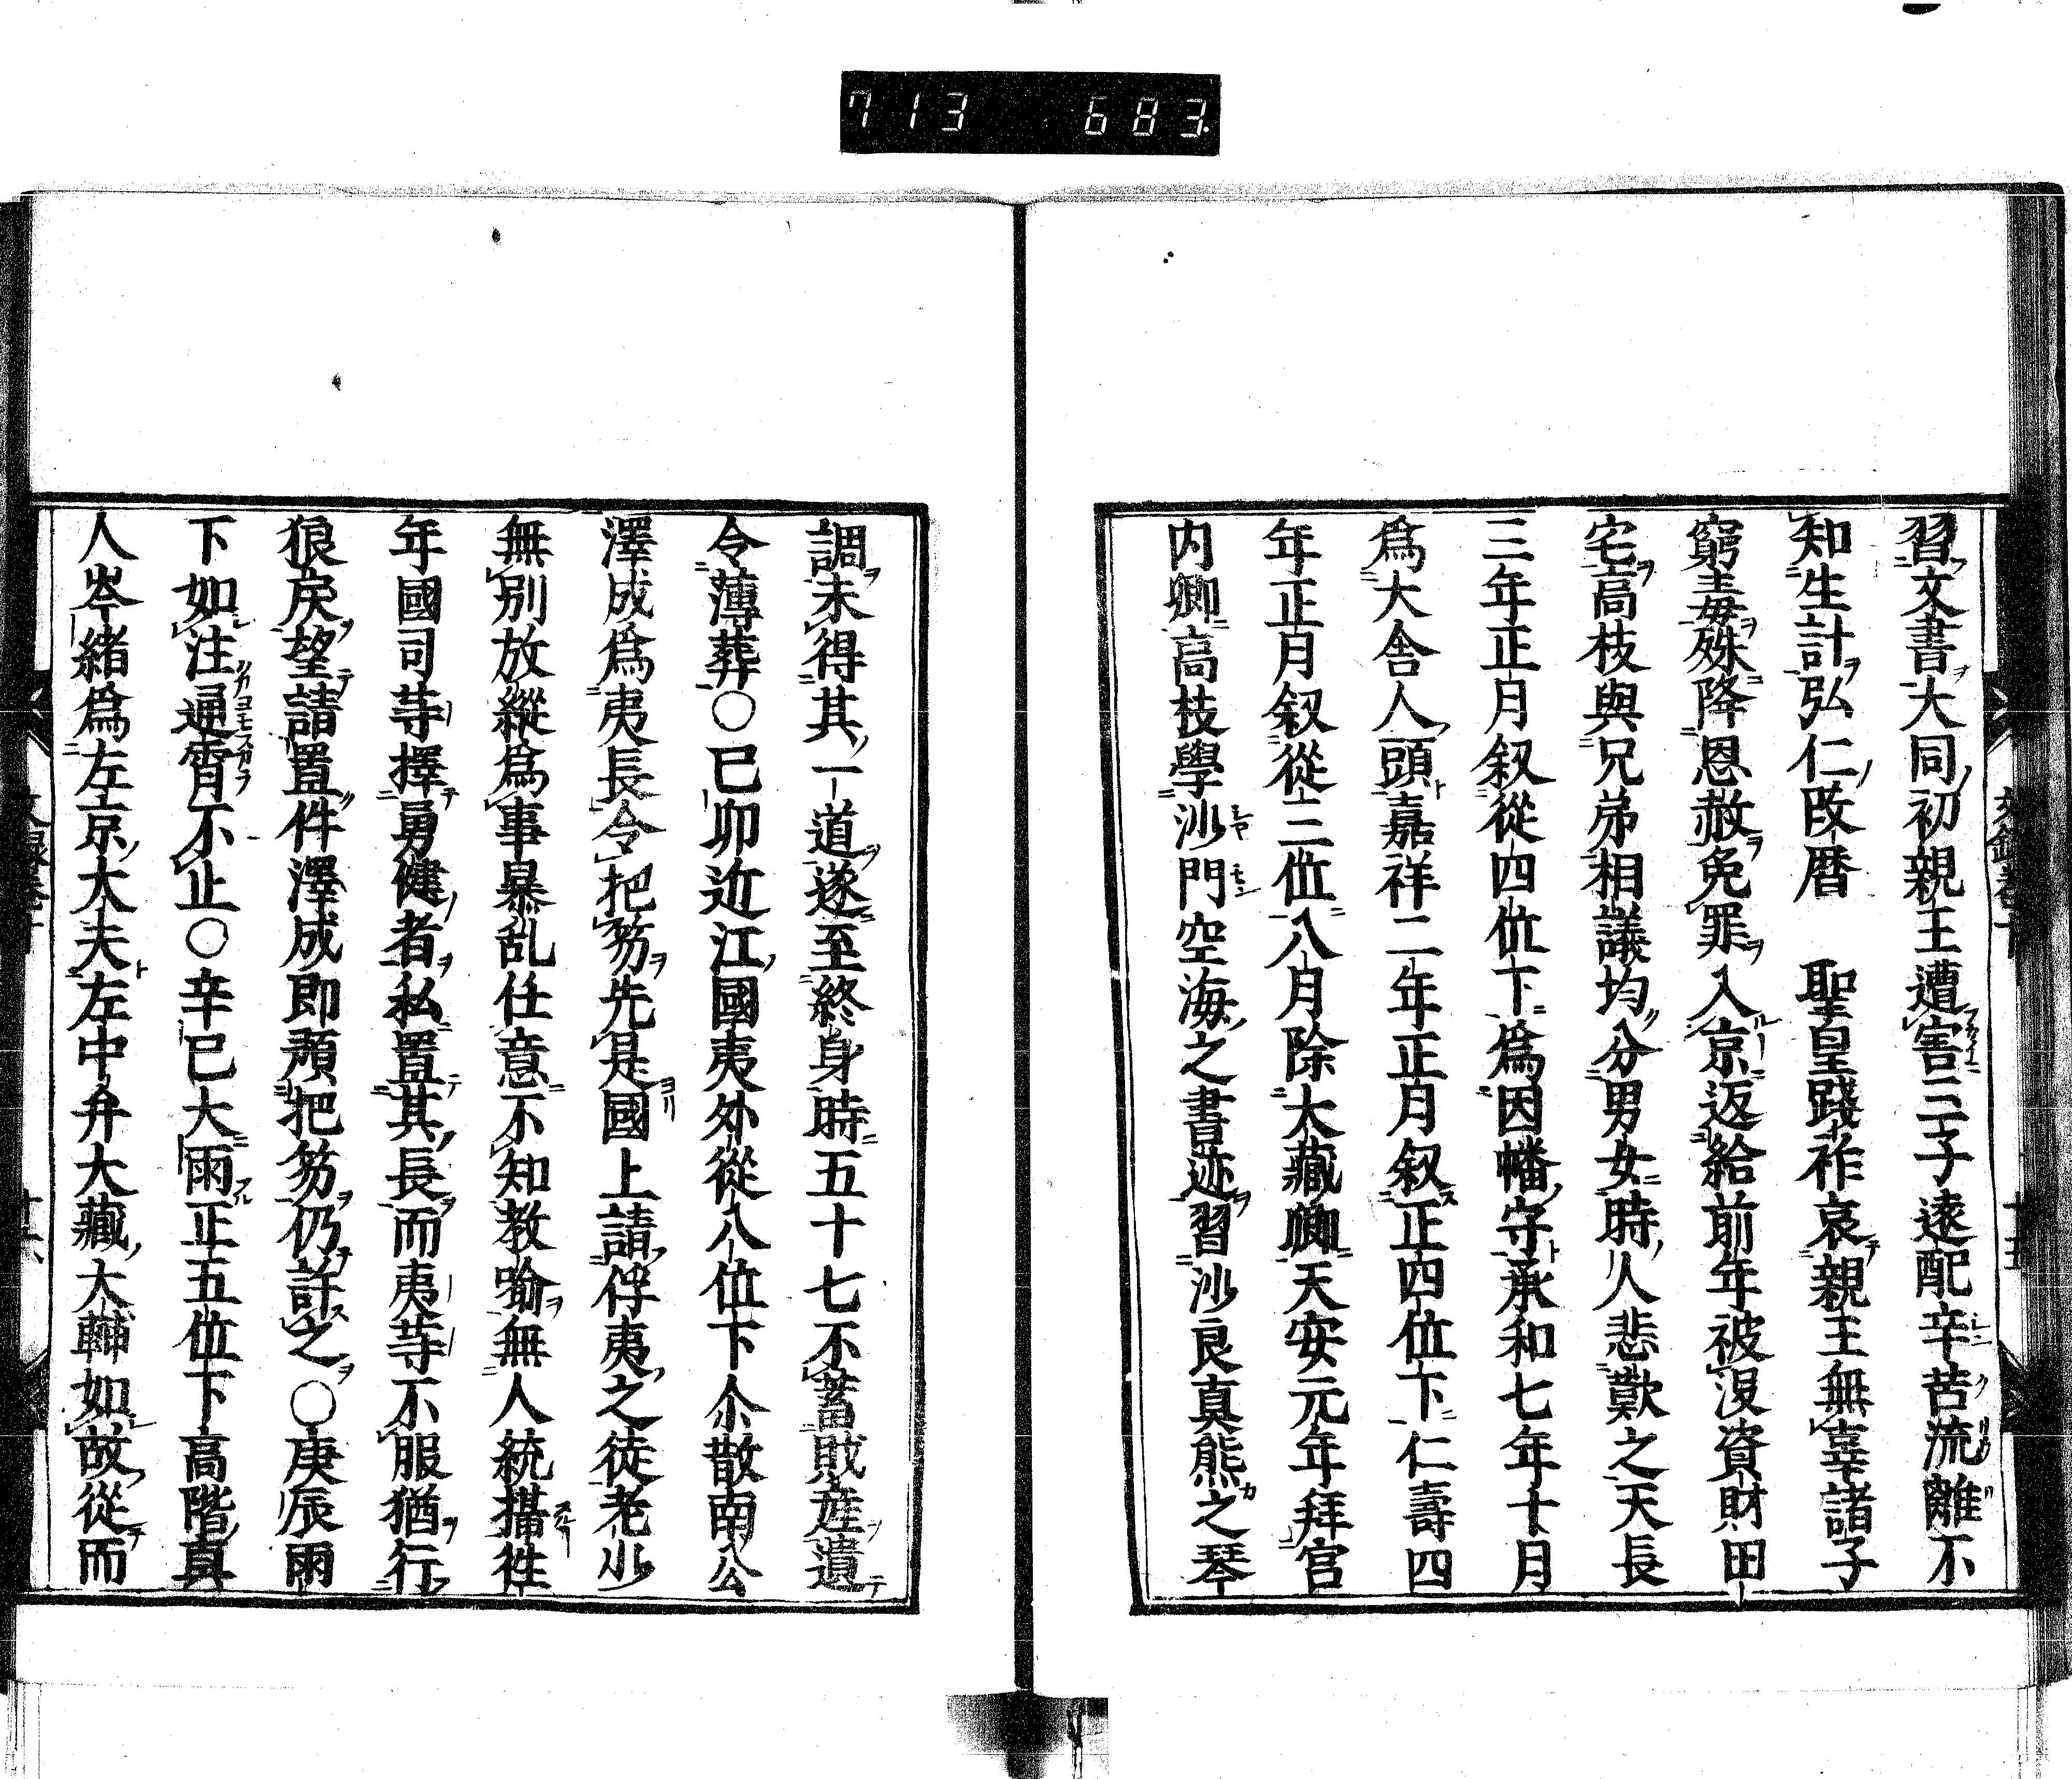 713 683
習文書大同初親王遭害三子遠配辛苦流離不
知生計弘仁改暦　聖皇踐祚哀親王無辜諸子
窮毒殊降恩赦免罪入京返給前年被沒資財田
宅高枝與兄弟相議均分男女時人悲歎之天長
三年正月叙從四位下爲因幡守承和七年十月
爲大舎人頭嘉祥二年正月叙正四位下仁壽四
年正月叙從三位八月除大藏卿天安元年拜宮
内卿高枝學沙門空海之書迹習沙良真熊之琴
調未得其一道遂至終身時五十七不蓄貲産遺
令薄葬○己卯近江國夷外從八位下尒散南公
澤成爲夷長令把笏先是國上請俘夷之徒老少
無別放縱爲事暴乱任意不知教喻無人統攝徃
年國司等擇勇健者私置其長而夷等不服猶行
狼戻望請置件澤成即預把笏仍許之○庚辰雨
下如注通宵不止○辛巳大雨正五位下高階真
人岑緒爲左京大夫左中弁大藏大輔如故從而